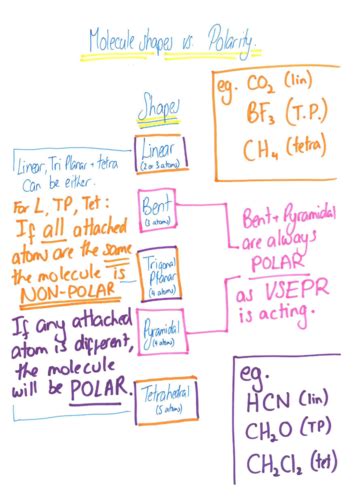 Molecule shapes vs. Polarity.
Shapes
eg. CO₂ (lin)
BF₃ (T.P.)
CH₄ (tetra)
Linear, Tri Planar + tetra
can be either.
For L, TP, Tet:
If all attached
atoms are the same
the molecule is
NON-POLAR
If any attached
atom is different,
the molecule
will be POLAR.
Linear
(2 or 3 atoms)
Bent
(3 atoms)
Trigonal
Planar
(4 atoms)
Pyramidal
(4 atoms)
Tetrahedral
(5 atoms)
Bent + Pyramidal
are always
POLAR
as VSEPR
is acting.
eg.
HCN (lin)
CH₂O (TP)
CH₂Cl₂ (tet)